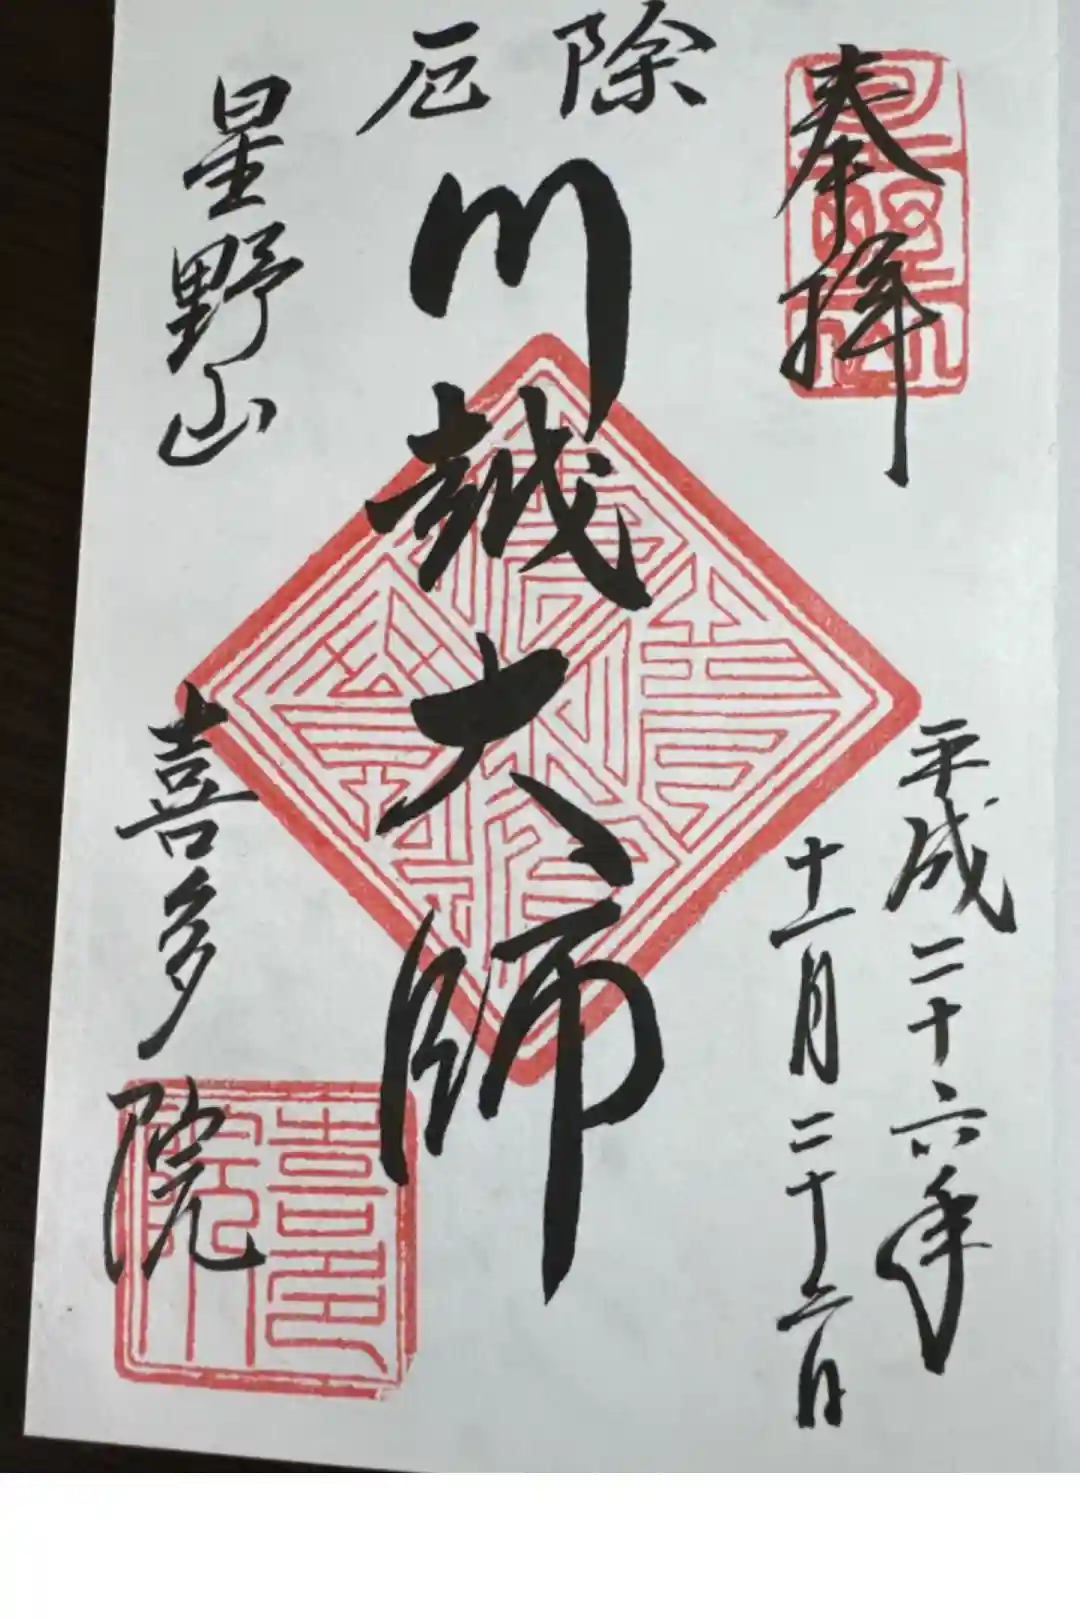 奉拝
平成二十六年
十一月二十六日
厄除
川越大師
星野山
喜多院
喜多院